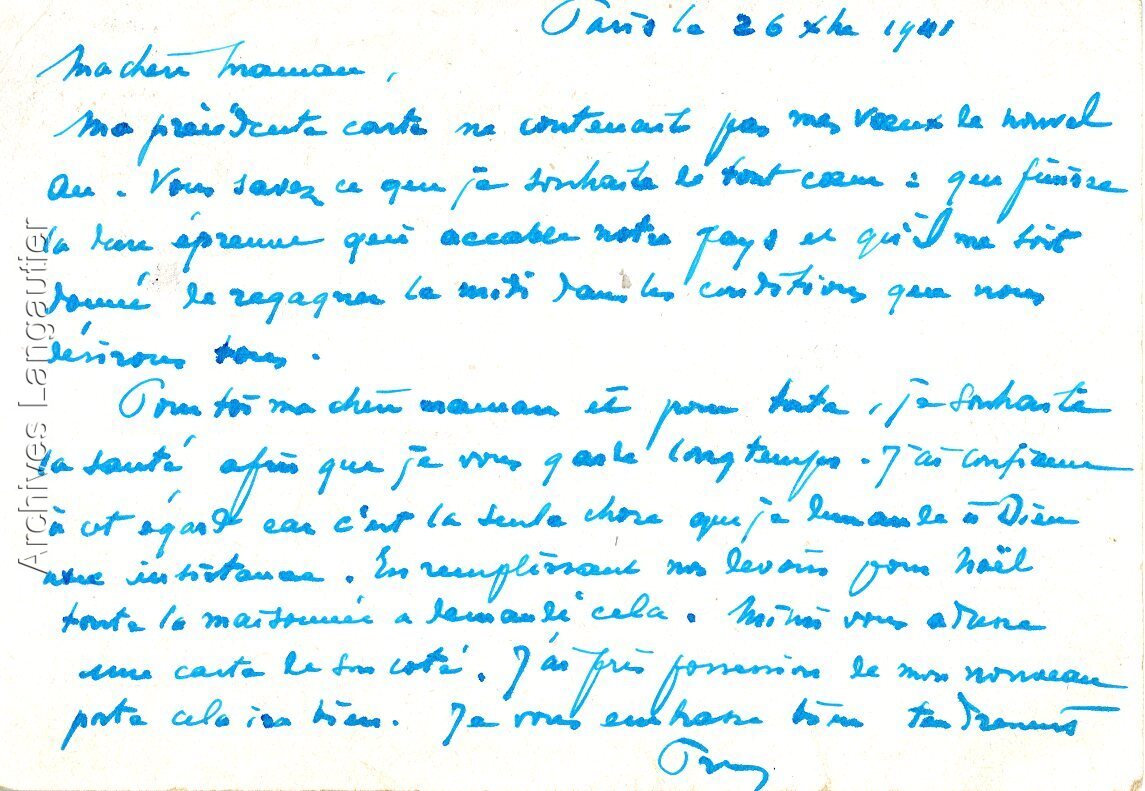 Paris le 26 xbre 1941
Ma chère maman,
Ma précédente carte ne contenant pas mes vœux de nouvel
an. Vous savez ce que je souhaite de tout cœur : que finisse
la dure épreuve qui accable notre pays et qu'il me soit
donné de regagner le midi dans les conditions que nous
désirons tous.
Pour toi ma chère maman et pour tata, je souhaite
la santé afin que je vous garde longtemps. J'ai confiance
à cet égard car c'est la seule chose que je demande à Dieu
avec insistance. En remplissant nos devoirs pour Noël
toute la maisonnée a demandé cela. Mimi vous adresse
une carte de son coté. J'ai pris possession de mon nouveau
poste cela ira bien. Je vous embrasse bien tendrement
Archives Langautier